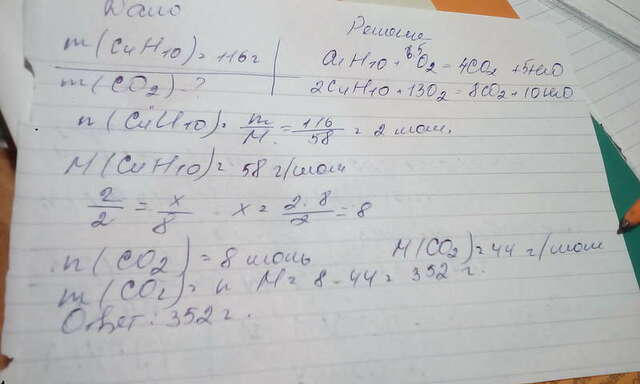 Дано
Решение
m(C4H10)=116г
C4H10+6,5O2=4CO2+5H2O
m(CO2)-?
2C4H10+13O2=8CO2+10H2O
n(C4H10)=m/M=116/58=2 моль.
M(C4H10)=58 г/моль
2/2=x/8 x=2·8/2=8
n(CO2)=8 моль M(CO2)=44 г/моль
m(CO2)=n M=8·44=352 г.
Ответ: 352 г.